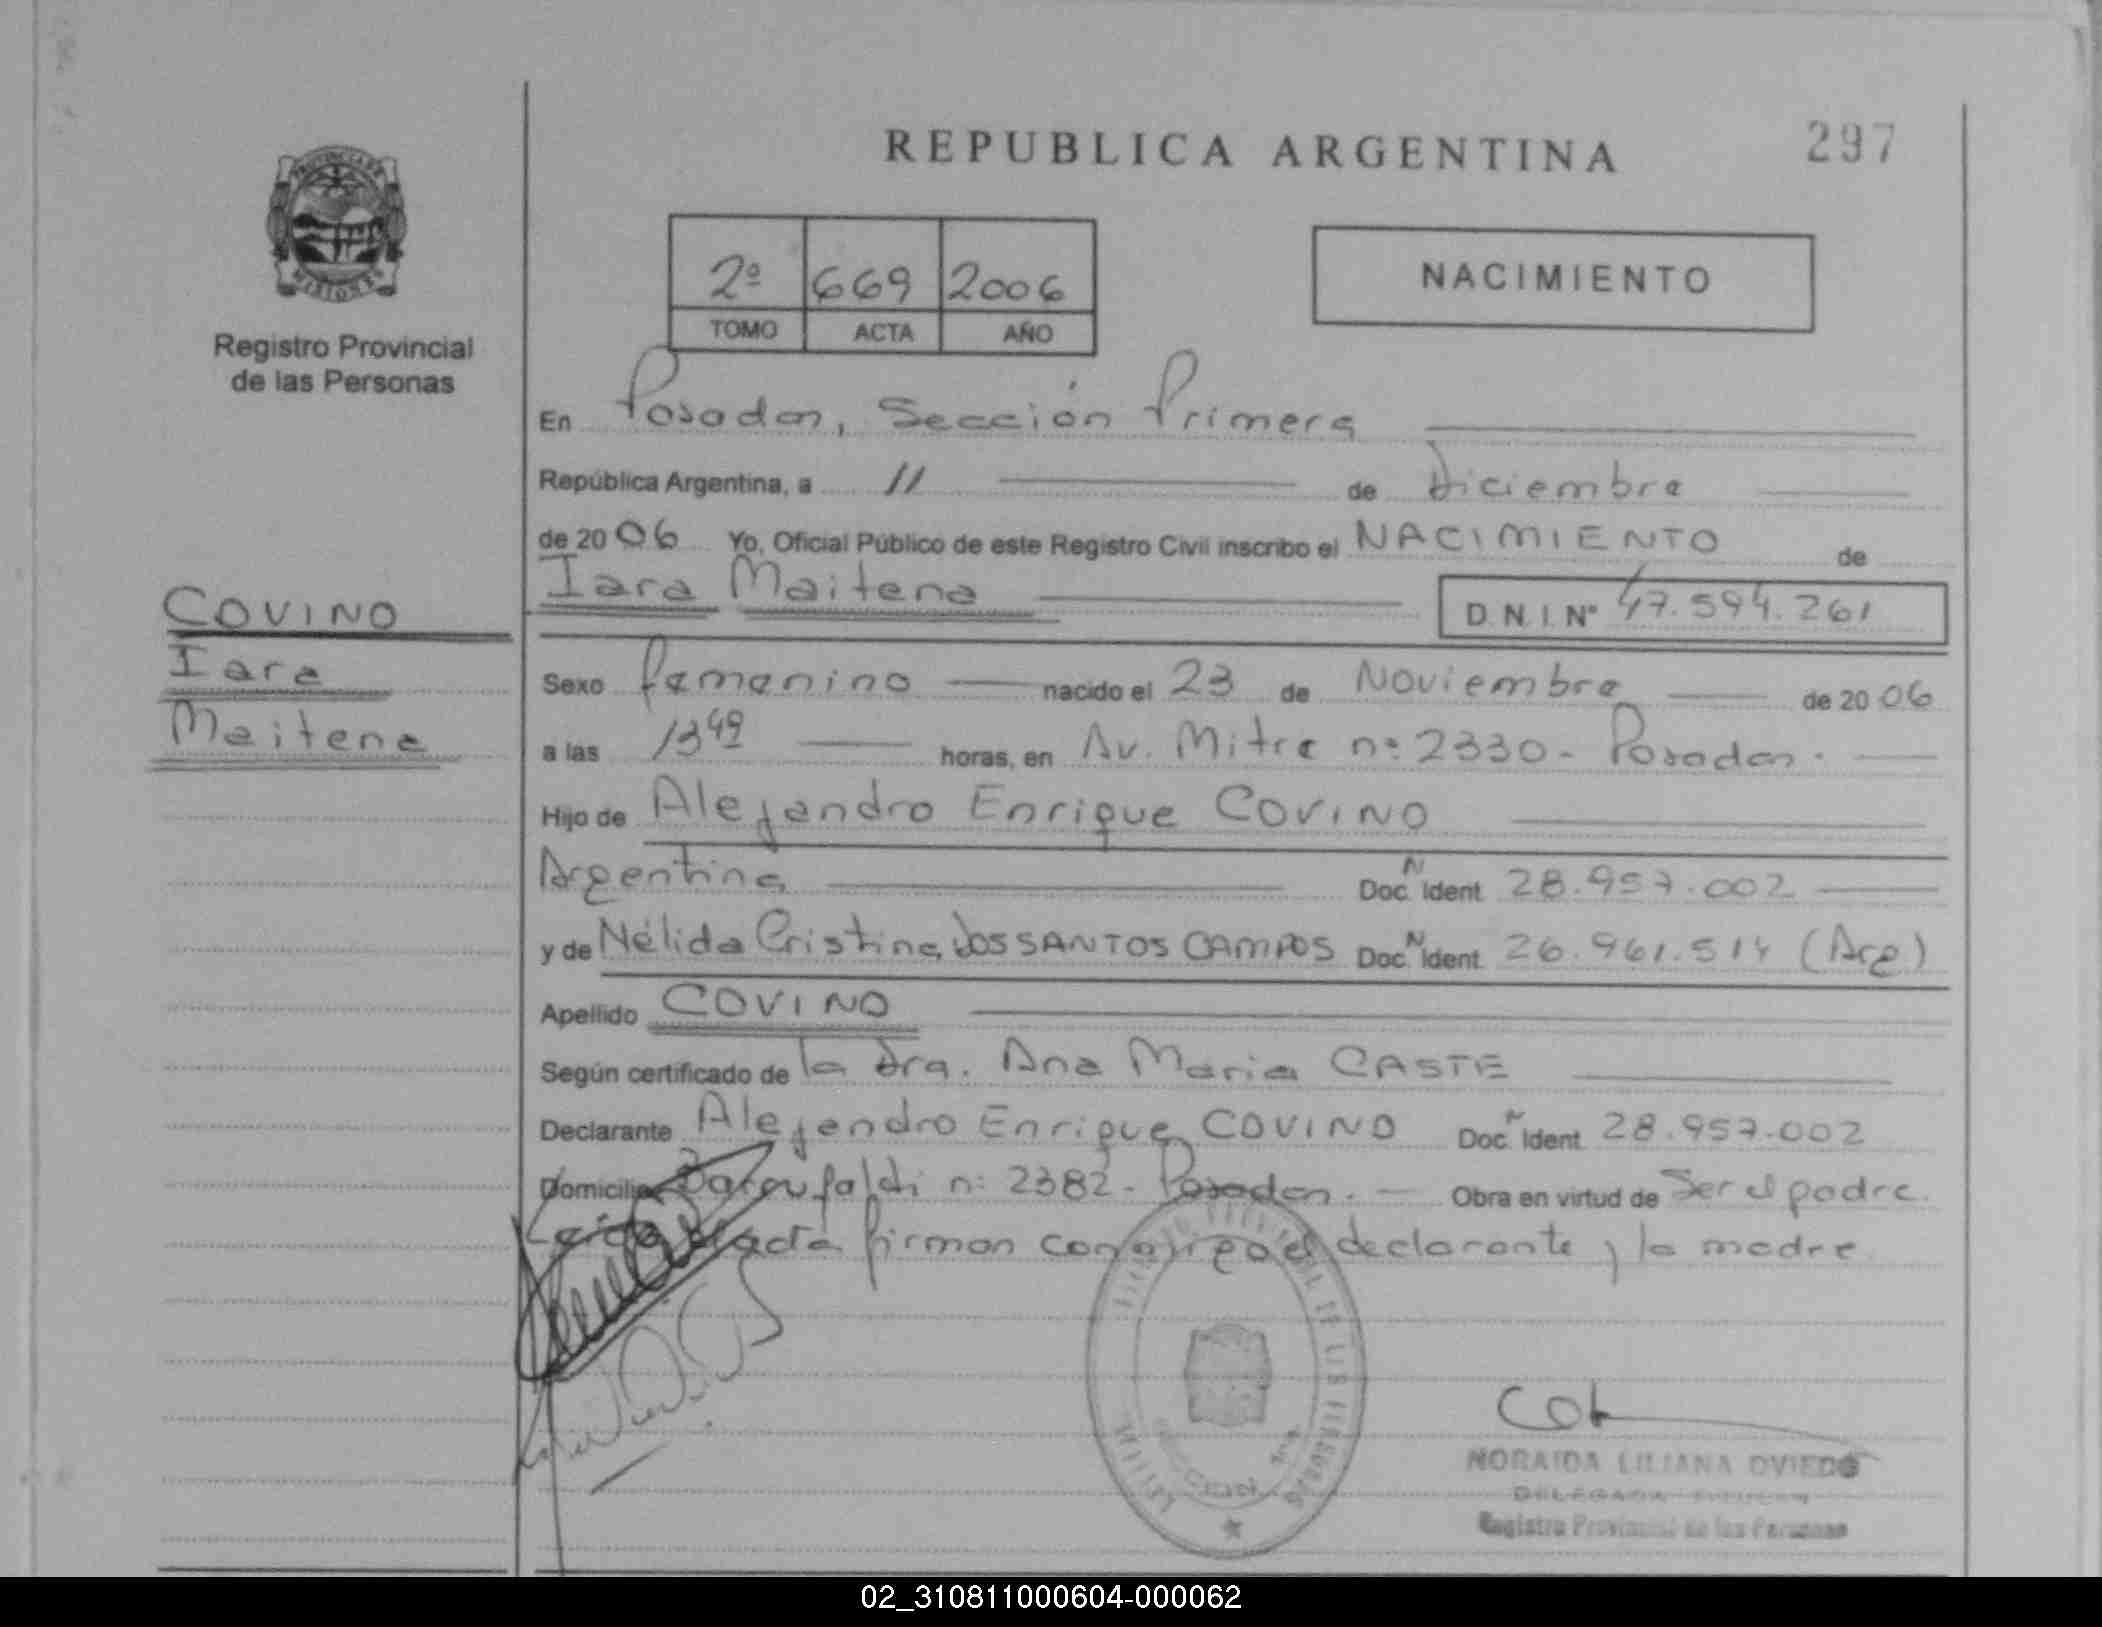 REPUBLICA ARGENTINA
297
PROVINCIA DE
MISIONES
Registro Provincial
de las Personas
2º 669 2006
TOMO ACTA AÑO
NACIMIENTO
En Posadas, Sección Primera
República Argentina, a 11 de Diciembre
de 20 06 Yo, Oficial Público de este Registro Civil inscribo el NACIMIENTO de
Iara Maitena
D.N.I. Nº 47.594.261
COVINO
Iara
Maitena
Sexo femenino nacido el 23 de Noviembre de 20 06
a las 13 49 horas, en Av. Mitre nº 2330 - Posadas.
Hijo de Alejandro Enrique COVINO
Argentina Doc. Ident. N 28.957.002
y de Nélida Cristina DOS SANTOS CAMPOS Doc. Ident. N 26.961.514 (Arg)
Apellido COVINO
Según certificado de la Dra. Ana Maria CASTE
Declarante Alejandro Enrique COVINO Doc. Ident. N 28.957.002
Domicilio nº 2382 - Posadas. Obra en virtud de Ser el padre.
Leída acta firman conmigo el declarante y la madre.
NORAIDA LILIANA OVIEDO
DELEGADA
Registro Provincial de las Personas
02_310811000604-000062